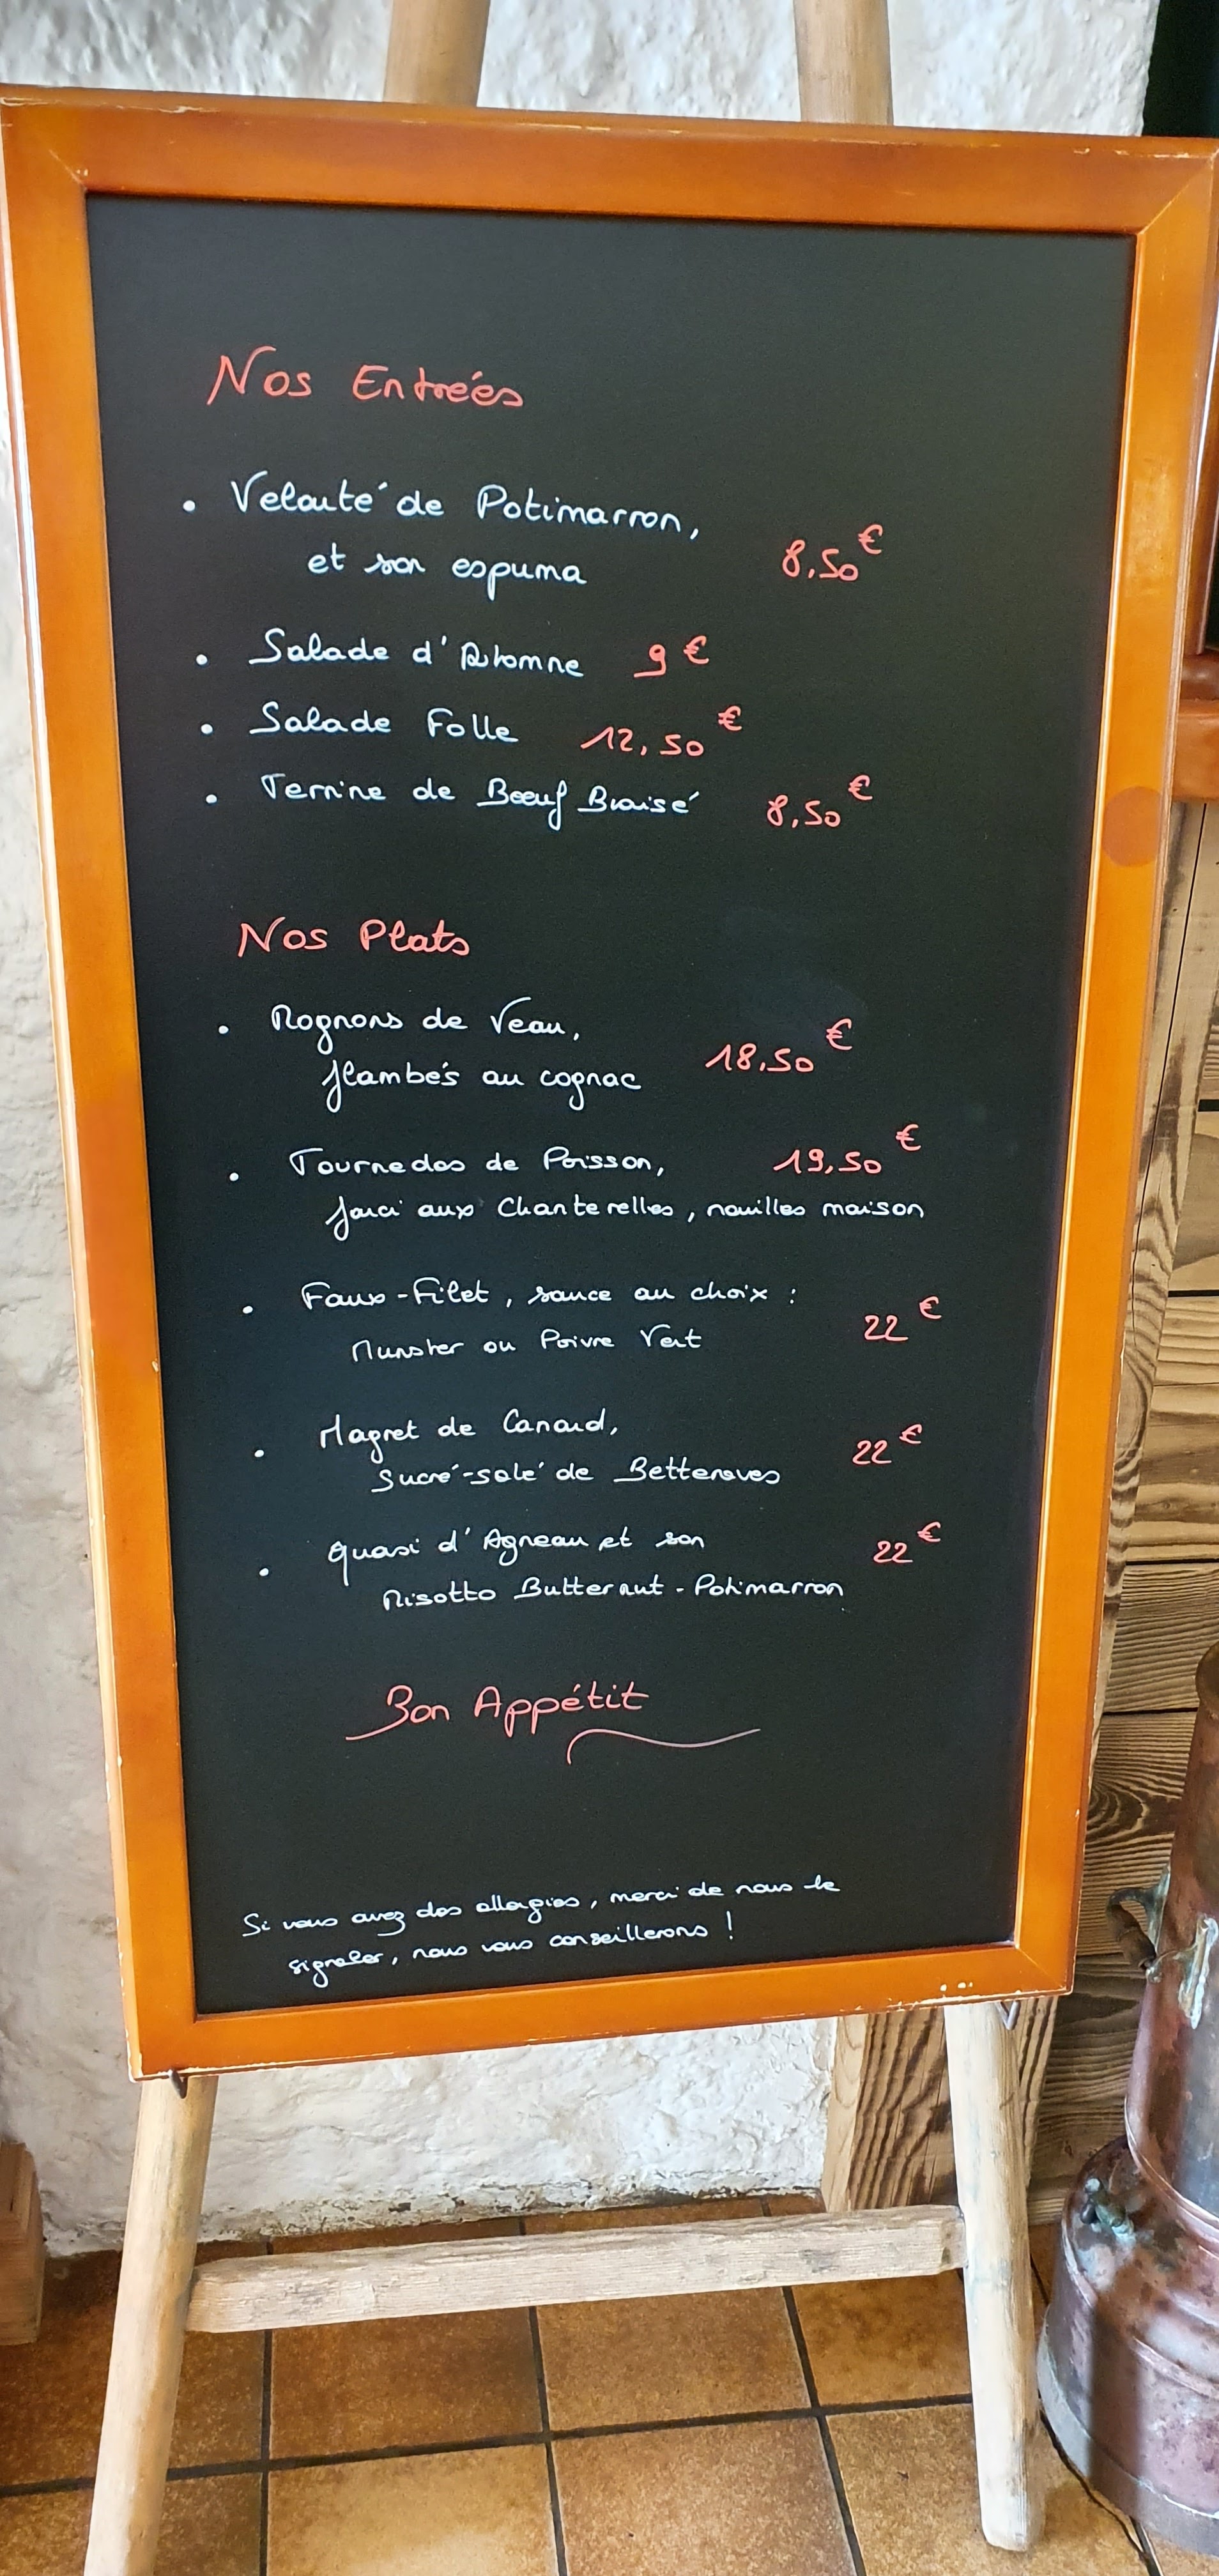 Nos Entrées
• Velouté de Potimarron,
8,50 €
et son espuma
• Salade d'Automne 9 €
• Salade Folle 12,50 €
• Terrine de Boeuf Braisé 8,50 €
Nos Plats
• Rognons de Veau,
18,50 €
flambés au cognac
• Tournedos de Poisson, 19,50 €
farci aux Chanterelles, nouilles maison
• Faux-Filet, sauce au choix :
22 €
Munster ou Poivre Vert
• Magret de Canard,
22 €
Sucré-salé de Betteraves
• Quasi d'Agneau et son 22 €
Risotto Butternut - Potimarron
Bon Appétit
Si vous avez des allergies, merci de nous le
signaler, nous vous conseillerons !